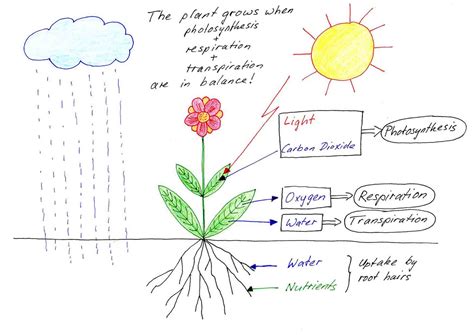 The plant grows when
photosynthesis
+
respiration
+
transpiration
are in balance!
Light
Carbon Dioxide
Photosynthesis
Oxygen
Respiration
Water
Transpiration
Water
Nutrients
Uptake by
root hairs